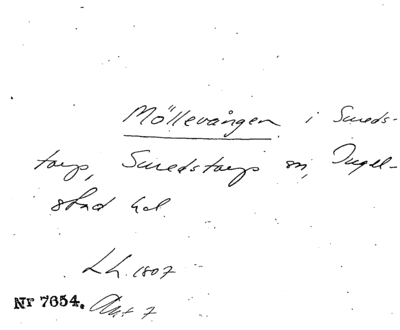 Möllevången i Smeds-
torp, Smedstorps sn, Ingel-
stad hd.
LL. 1807
Nr 7654. Akt 7